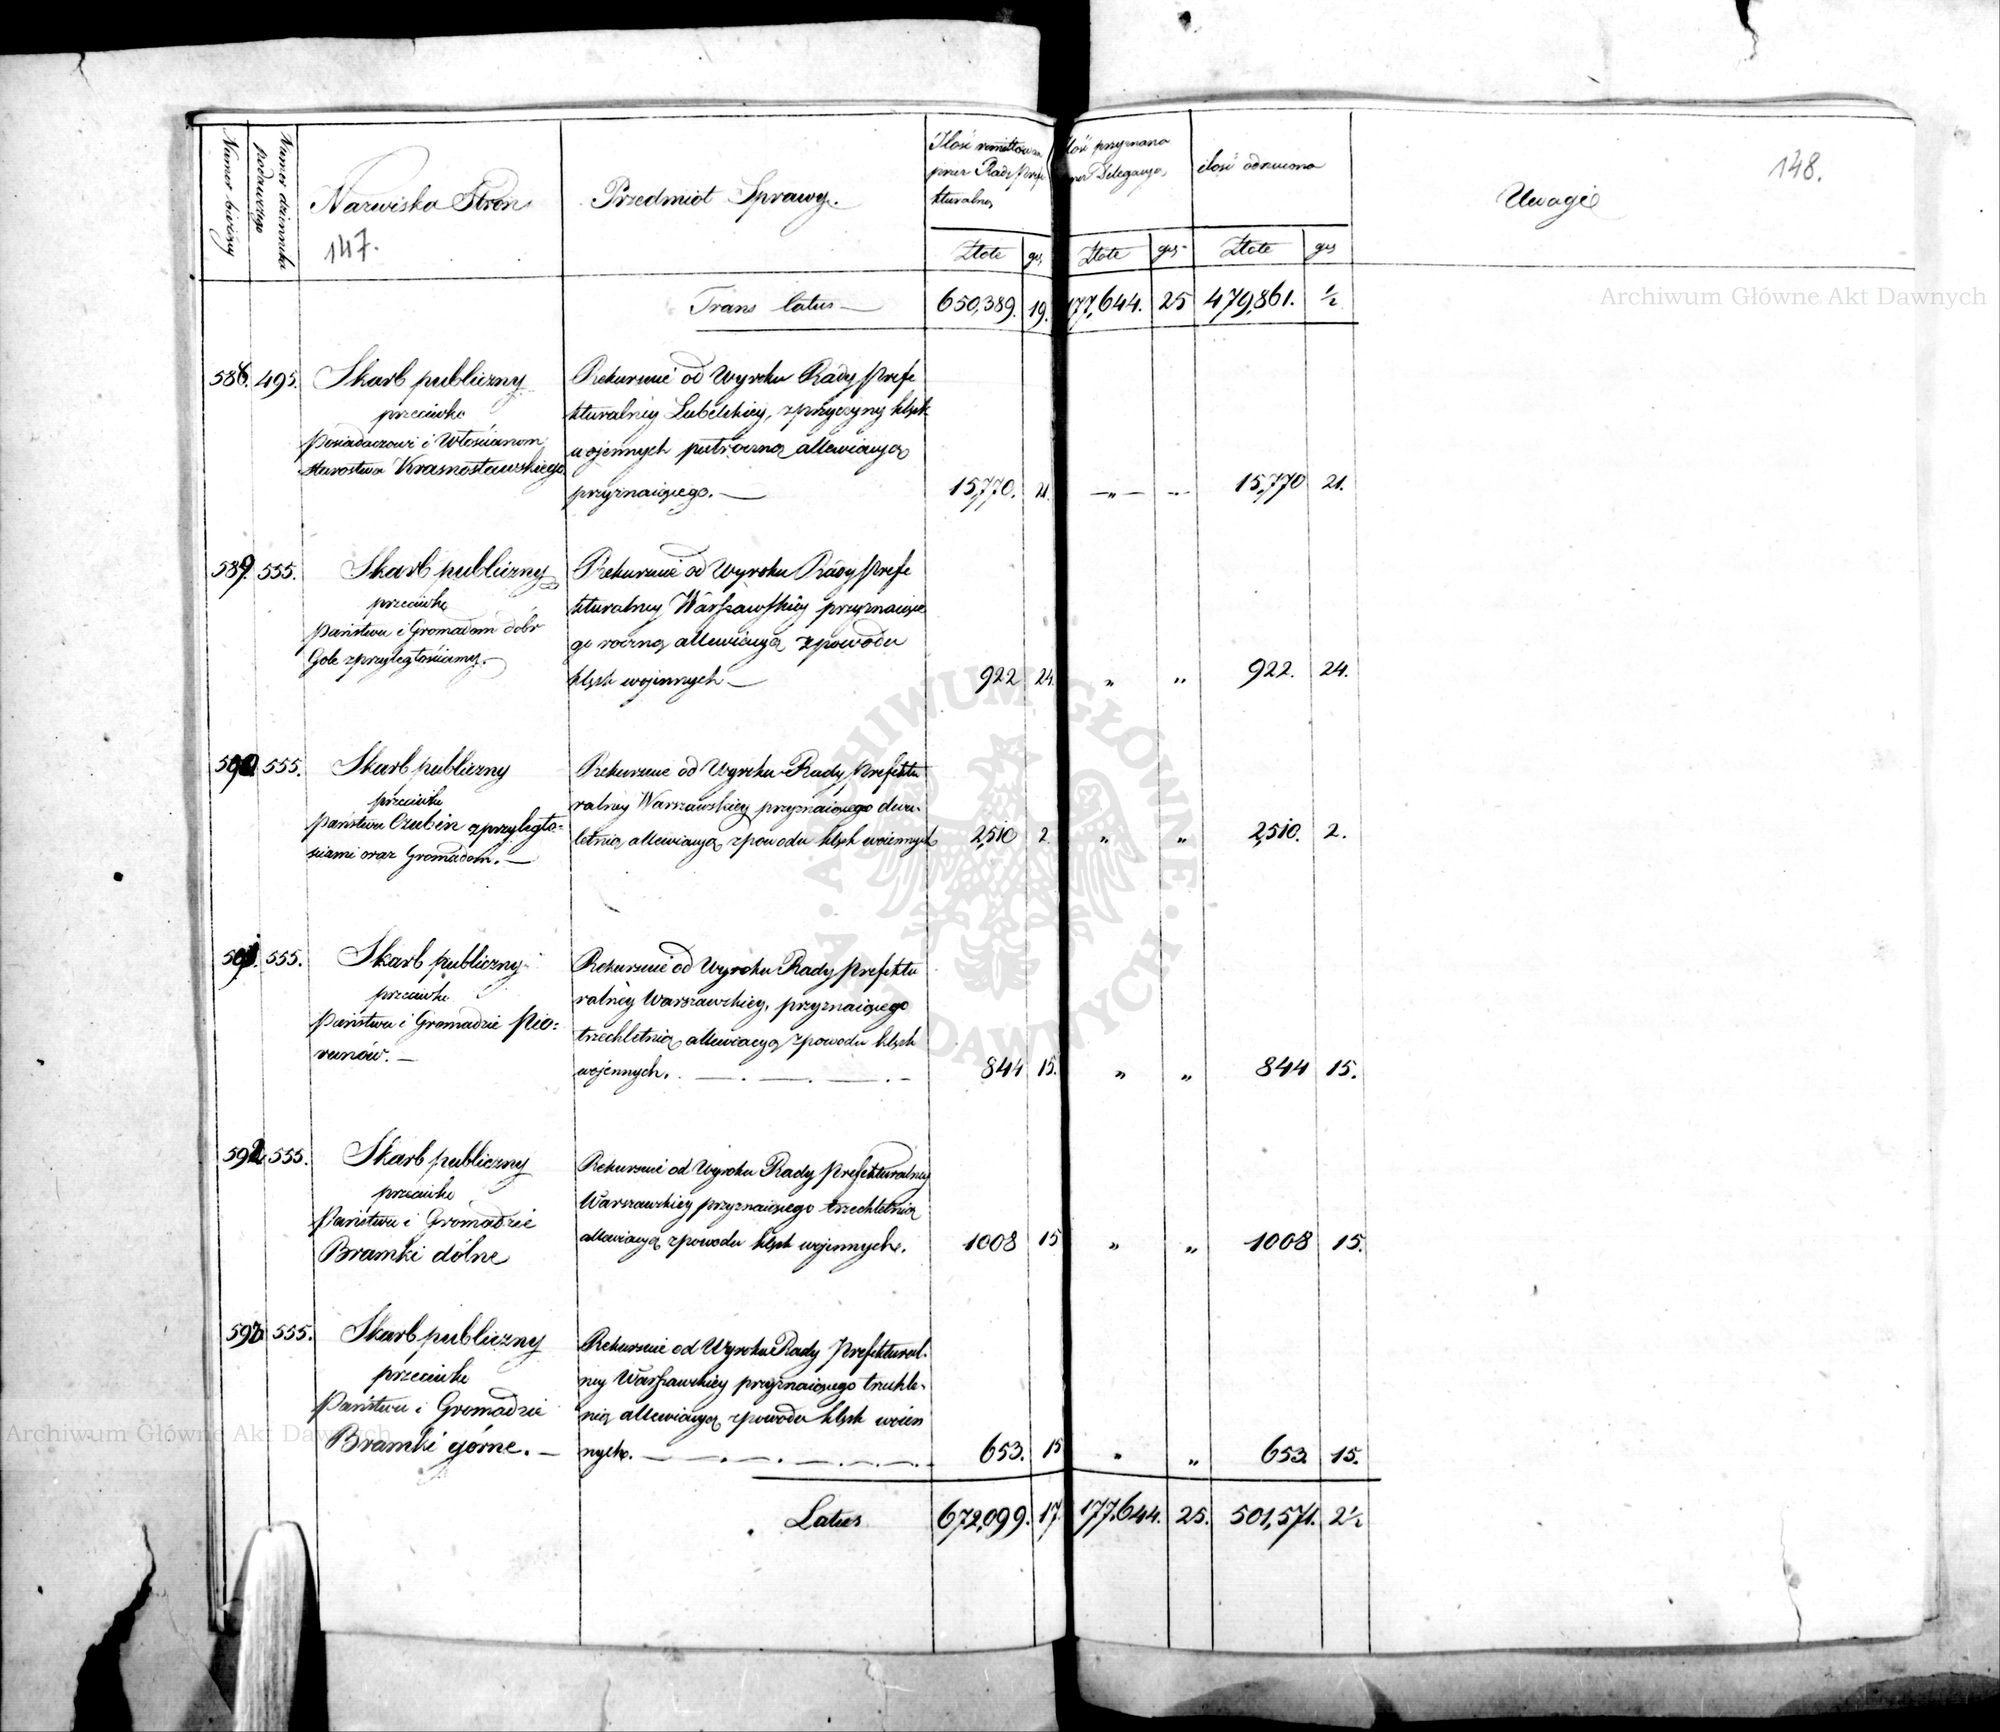 Numer bieżący
Numer dziennika podawczego
Nazwiska Stron
147.
Przedmiot Sprawy.
Ilość remittowa
przez Radę Prefe
kturalną
Ilość przyznana
przez Delegacyą
ilość odrzucona
Uwagi
148.
Złote gr Złote gr Złote gr
Trans latus — 650,389. 19. 177,644. 25 479,861. ½
Archiwum Główne Akt Dawnych
588. 495. Skarb publiczny
przeciwko
Posiadaczowi i Włościanom
Starostwa Krasnostawskiego
Rekursuie od Wyroku Rady Prefe
kturalney Lubelskiey, z przyczyny klęsk
wojennych putroczną allewiacyą
przyznaiącego. — 15,770. 21. —„— — 15,770 21.
589. 555. Skarb publiczny
przeciwko
Państwu i Gromadom dóbr
Gole z przyległościamy. —
Rekursuie od Wyroku Rady Prefe
kturalney Warszawskiey przyznaiące
go roczną allewiacyą z powodu
klęsk wojennych — 922 24. „ „ 922. 24.
590. 555. Skarb publiczny
przeciwko
Państwu Czubin z przyległo=
ściami oraz Gromadom. —
Rekursuie od Wyroku Rady Prefektu
ralney Warszawskiey przyznaiącego dwu-
letnią allewiacyą z powodu klęsk woiennych 2,510 2 „ „ 2,510. 2.
591. 555. Skarb publiczny
przeciwko
Państwu i Gromadzie Pio=
runów. —
Rekursuie od Wyroku Rady Prefektu
ralney Warszawskiey, przyznaiącego
trzechletnią allewiacyą z powodu klęsk
wojennych. — 844 15. „ „ 844 15.
592. 555. Skarb publiczny
przeciwko
Państwu i Gromadzie
Bramki dólne
Rekursuie od Wyroku Rady Prefekturalney
Warszawskiey przyznaiącego trzechletnią
allewiacyą z powodu klęsk wojennych. 1008 15 „ „ 1008 15.
593. 555. Skarb publiczny
przeciwko
Państwu i Gromadzie
Bramki górne. —
Rekursuie od Wyroku Rady Prefektural-
ney Warszawskiey przyznaiącego trzechle-
nią allewiacyą z powodu klęsk woien
nych. — 653. 15 „ „ 653 15.
Latus 672,099. 17. 177,644. 25. 501,571. 2½
ARCHIWUM GŁÓWNE AKT DAWNYCH
Archiwum Główne Akt Dawnych